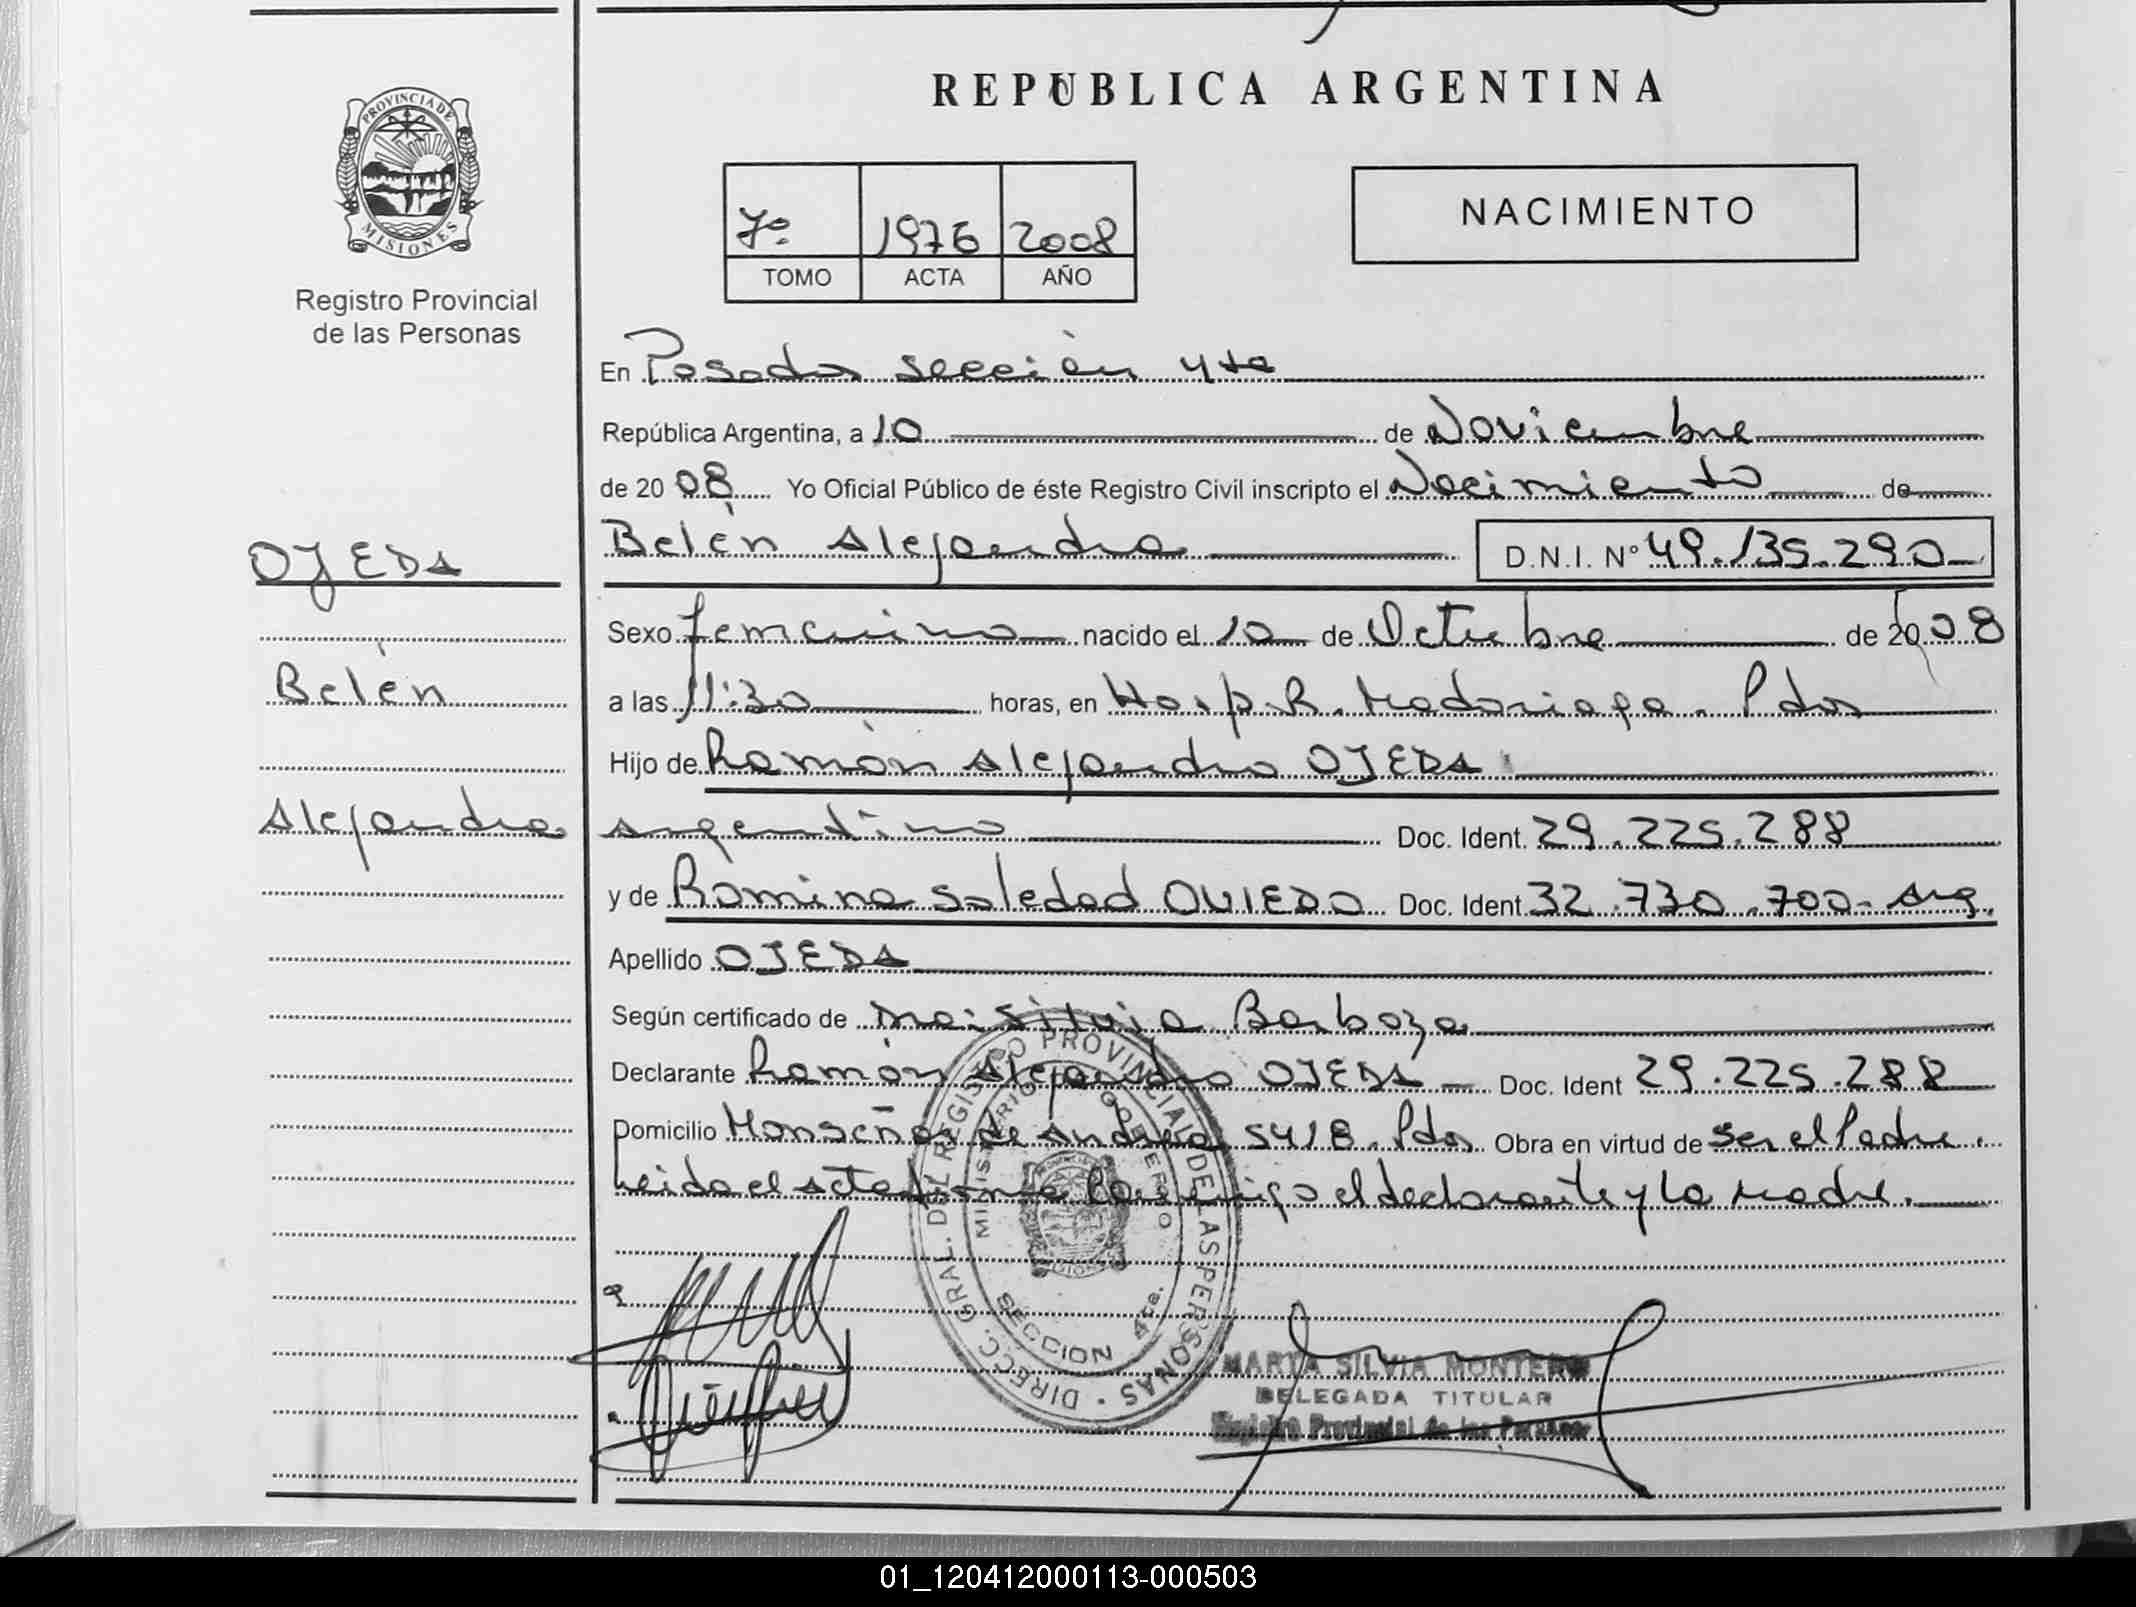 REPUBLICA ARGENTINA
PROVINCIA DE
MISIONES
Registro Provincial
de las Personas
7º 1976 2008
TOMO ACTA AÑO
NACIMIENTO
En Posadas sección 4ta
República Argentina, a 10 de Noviembre
de 2008 Yo Oficial Público de éste Registro Civil inscripto el Nacimiento de
Belén Alejandra D.N.I. Nº 49.135.290
OJEDA
Belén
Alejandra
Sexo femenino nacido el 10 de Octubre de 2008
a las 11:30 horas, en Hosp. R. Madariaga. Pdas
Hijo de Ramón Alejandro OJEDA
argentino Doc. Ident. 29.225.288
y de Romina Soledad OVIEDO Doc. Ident 32.730.700- Arg.
Apellido OJEDA
Según certificado de Silvia Barboza
Declarante Ramón Alejandro OJEDA Doc. Ident 29.225.288
Domicilio Monseñor de Andrea 5418. Pdas Obra en virtud de ser el Padre.
Leida el acta firma conmigo el declarante y la madre.
DIRECC. GRAL. DEL REGISTRO PROVINCIAL DE LAS PERSONAS
MINISTERIO DE GOBIERNO
SECCION 4ta.
MARTA SILVIA MONTERO
DELEGADA TITULAR
Registro Provincial de las Personas
01_120412000113-000503